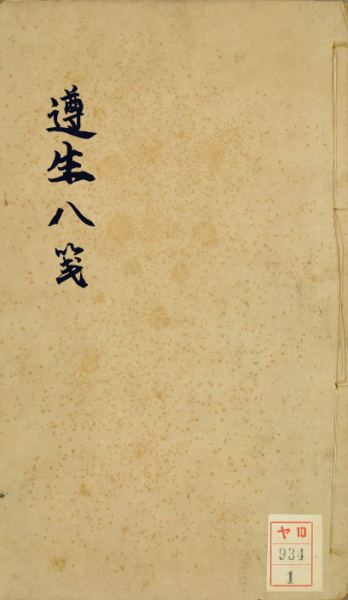 遵生八箋
ヤ10
934
1